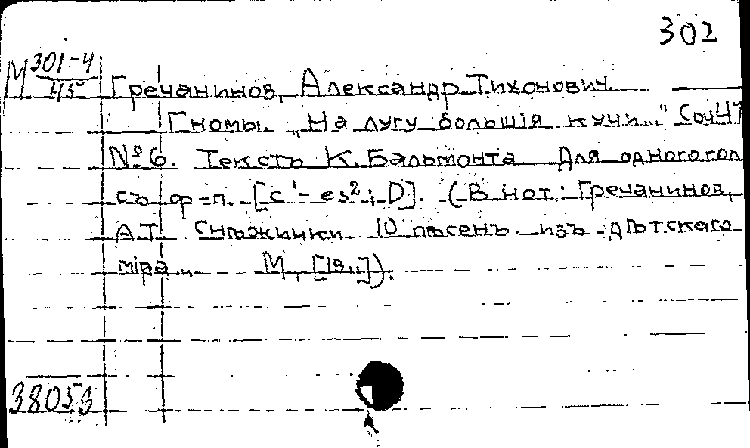 302
М 301-4
45
Гречанинов, Александр Тихонович.
Гномы. "На лугу большія кучи..." Соч 47
№ 6. Текстъ К. Бальмонта Для одного гол
съ ф=п. [c¹ - es²; D]. (В нот: Гречанинов,
А.Т. Снѣжинки 10 пѣсенъ изъ дѣтскаго
міра М.,
38053